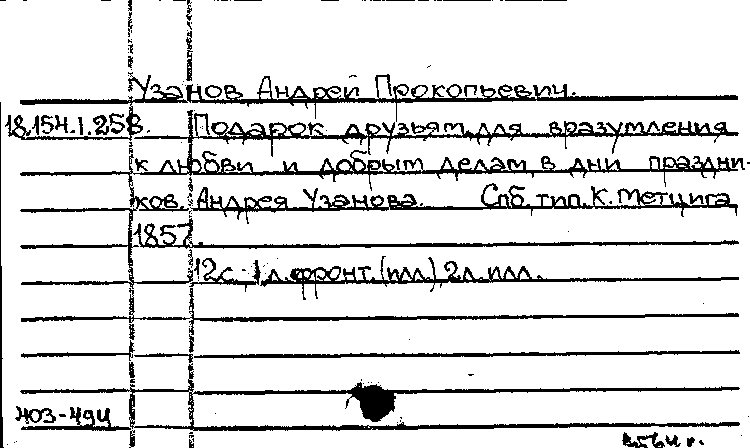 Узанов Андрей Прокопьевич.
18.154.1.258. Подарок друзьям, для вразумления
к любви и добрым делам, в дни праздни-
ков. Андрея Узанова. Спб, тип. К. Метцига,
1857.
12с., 1 л. фронт. (илл.), 2 л. илл.
403-494